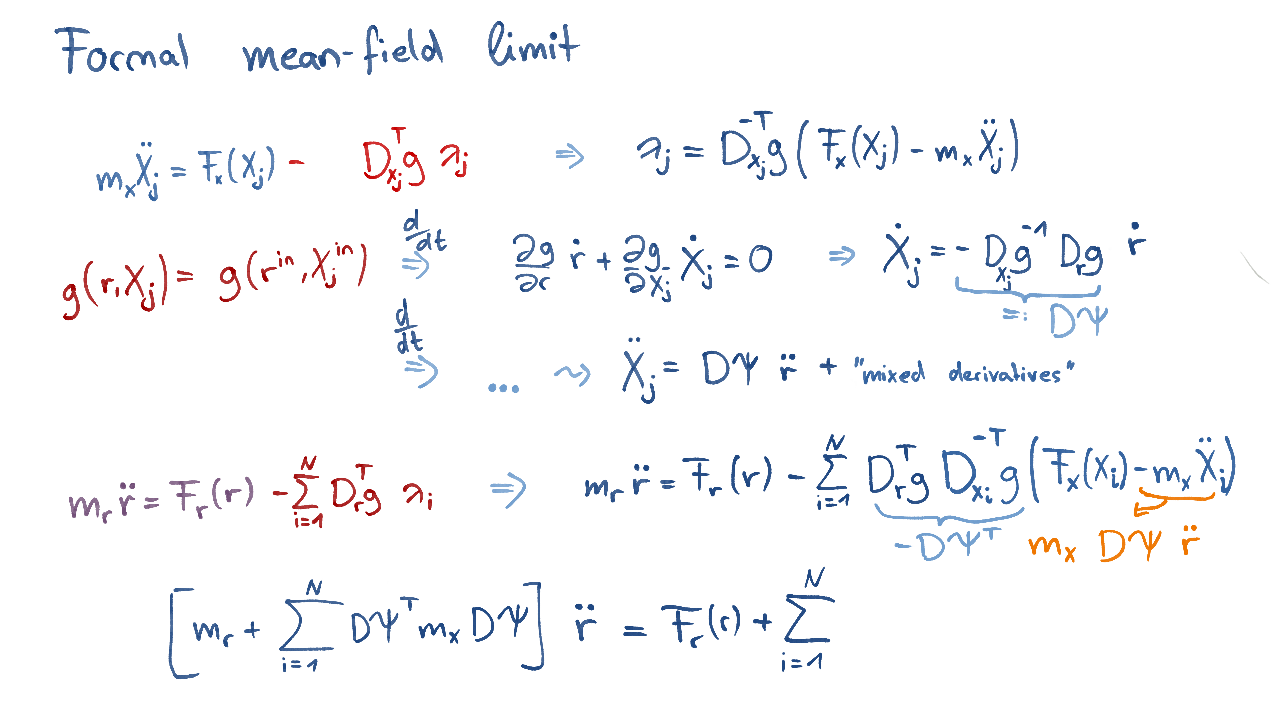 Formal mean-field limit
m_x Ẍ_j = F_x(X_j) - D_{x_j}^T g λ_j ⇒ λ_j = D_{x_j}^{-T} g (F_x(X_j) - m_x Ẍ_j)
g(r, X_j) = g(r^{in}, X_j^{in}) d/dt ⇒ ∂g/∂r ṙ + ∂g/∂X_j Ẋ_j = 0 ⇒ Ẋ_j = - D_{x_j} g^{-1} D_r g ṙ
=: DΨ
d/dt ⇒ ... ⇝ Ẍ_j = DΨ r̈ + "mixed derivatives"
m_r r̈ = F_r(r) - ∑_{i=1}^N D_r^T g λ_i ⇒ m_r r̈ = F_r(r) - ∑_{i=1}^N D_r^T g D_{x_i}^{-T} g (F_x(X_i) - m_x Ẍ_i)
-DΨ^T m_x DΨ r̈
[m_r + ∑_{i=1}^N DΨ^T m_x DΨ] r̈ = F_r(r) + ∑_{i=1}^N